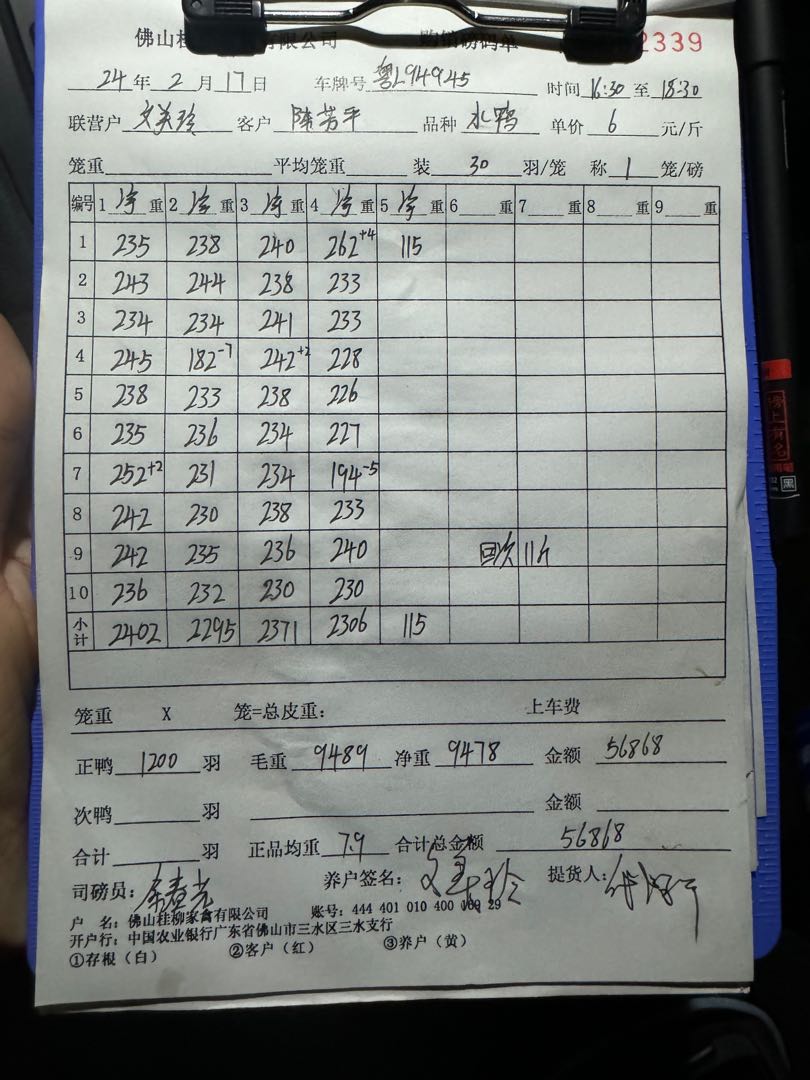 佛山桂 有限公司 购销磅码单 2339
24年2月17日 车牌号 粤L94945 时间16:30至18:30
联营户 文美玲 客户 陈芳平 品种 水鸭 单价 6 元/斤
笼重 平均笼重 装 30 羽/笼 称 1 笼/磅
编号 1 净 重 2 净 重 3 净 重 4 净 重 5 净 重 6 重 7 重 8 重 9 重
1 235 238 240 262+4 115
2 243 244 238 233
3 234 234 241 233
4 245 182-7 242+2 228
5 238 233 238 226
6 235 236 234 227
7 252+2 231 234 194-5
8 242 230 238 233
9 242 235 236 240 回次 11斤
10 236 232 230 230
小计 2402 2295 2371 2306 115
笼重 X 笼=总皮重: 上车费
正鸭 1200 羽 毛重 9489 净重 9478 金额 56868
次鸭 羽 金额
合计 羽 正品均重 7.9 合计总金额 56868
司磅员: 养户签名: 文美玲 提货人:
户 名: 佛山桂柳家禽有限公司 账号: 444 401 010 400 169 29
开户行: 中国农业银行广东省佛山市三水区三水支行
①存根(白) ②客户(红) ③养户(黄)
榜上有名
黑